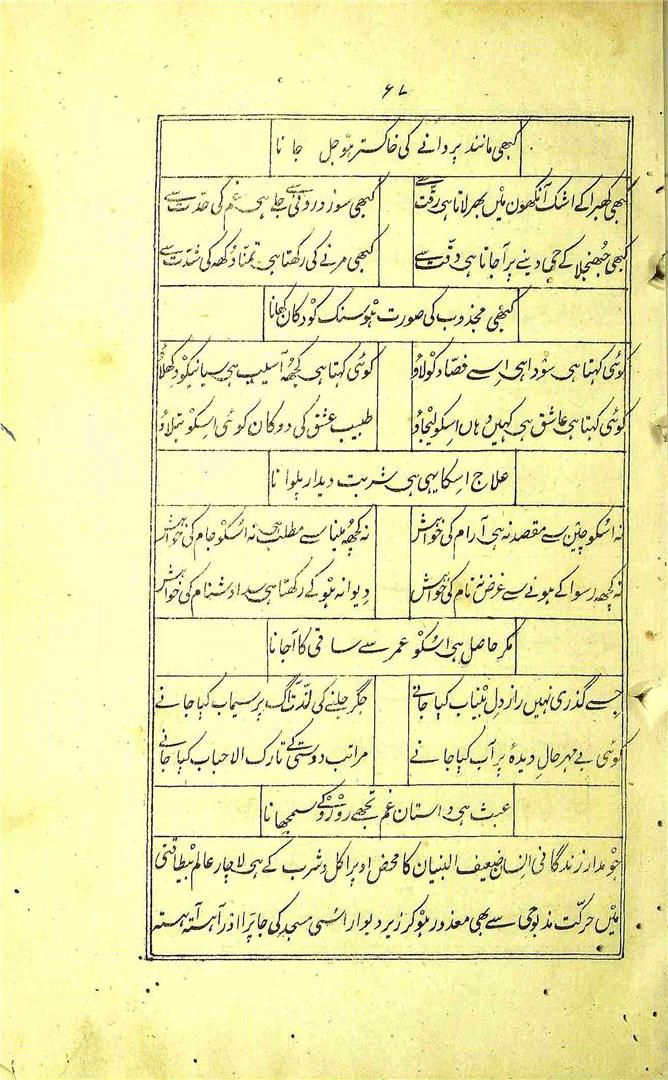 ۶۷
کبھی مانند پروانے کی خاکستر ہو جل جانا
کبھی گھبرا کے اشک آنکھون میں بھر لاتا ہی رقّت سے کبھی سوز درونی سے جلے ہی غم کی حدّت سے
کبھی جھنجلا کے جی دینے پر آجاتا ہی دقّت سے کبھی مرنے کی رکھتا ہی تمنّا دُکھ کی شدّت سے
کبھی مجذوب کی صورت ہو سنک کودکان کھانا
کوئی کہتا ہی سودا ہی اِسے فصّاد کو لاؤ کوئی کہتا ہی کچھہ آسیب ہی سیانیکو دکھلاؤ
کوئی کہتا ہی عاشق ہی کہیں وہاں اسکو لیجاؤ طبیب عشق کی دوکان کوئی اسکو بتلاؤ
علاج اِسکا یہی ہی شربت دیدار پلوانا
نہ اُسکو چین سے مقصد نہ ہی آرام کی خواہش نہ کچھہ مینا سے مطلب ہی نہ اُسکو جام کی خواہش
نہ کچھہ رسوا کے ہونے سے غرض نہ نام کی خواہش دیوانہ ہو کے رکھتا ہی سدا دشنام کی خواہش
مگر حاصل ہی اسکو عمر سے ساقی کا آجانا
جسے گذری نہیں راز دل بیتاب کیا جانے جگر جلنے کی لذّت آگ پر سیماب کیا جانے
کوئی بے مہر حالِ دیدۂ پر آب کیا جانے مراتب دوستی کے تارک الاحباب کیا جانے
عبث ہی داستان غم تجھے رو رو کے سمجھانا
جو مدار زندگانی انسان ضعیف البنیان کا محض اوپر اکل و شرب کے ہی لاچار عالم بیطاقتی
میں حرکت مذبوحی سے بھی معذور ہو کر زیر دیوار اسی مسجد کی جا پرا اور آہستہ آہستہ